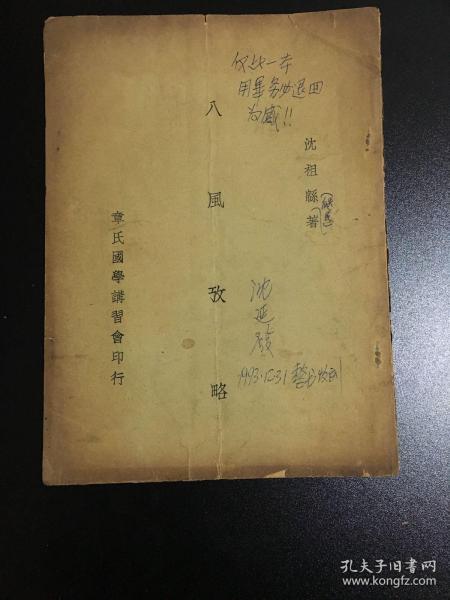 仅此一本
用畢务必退回
为感!!
沈祖緜著
八風攷略
章氏國學講習會印行
沈延發
1993.12.31
孔夫子旧书网
www.kongfz.com